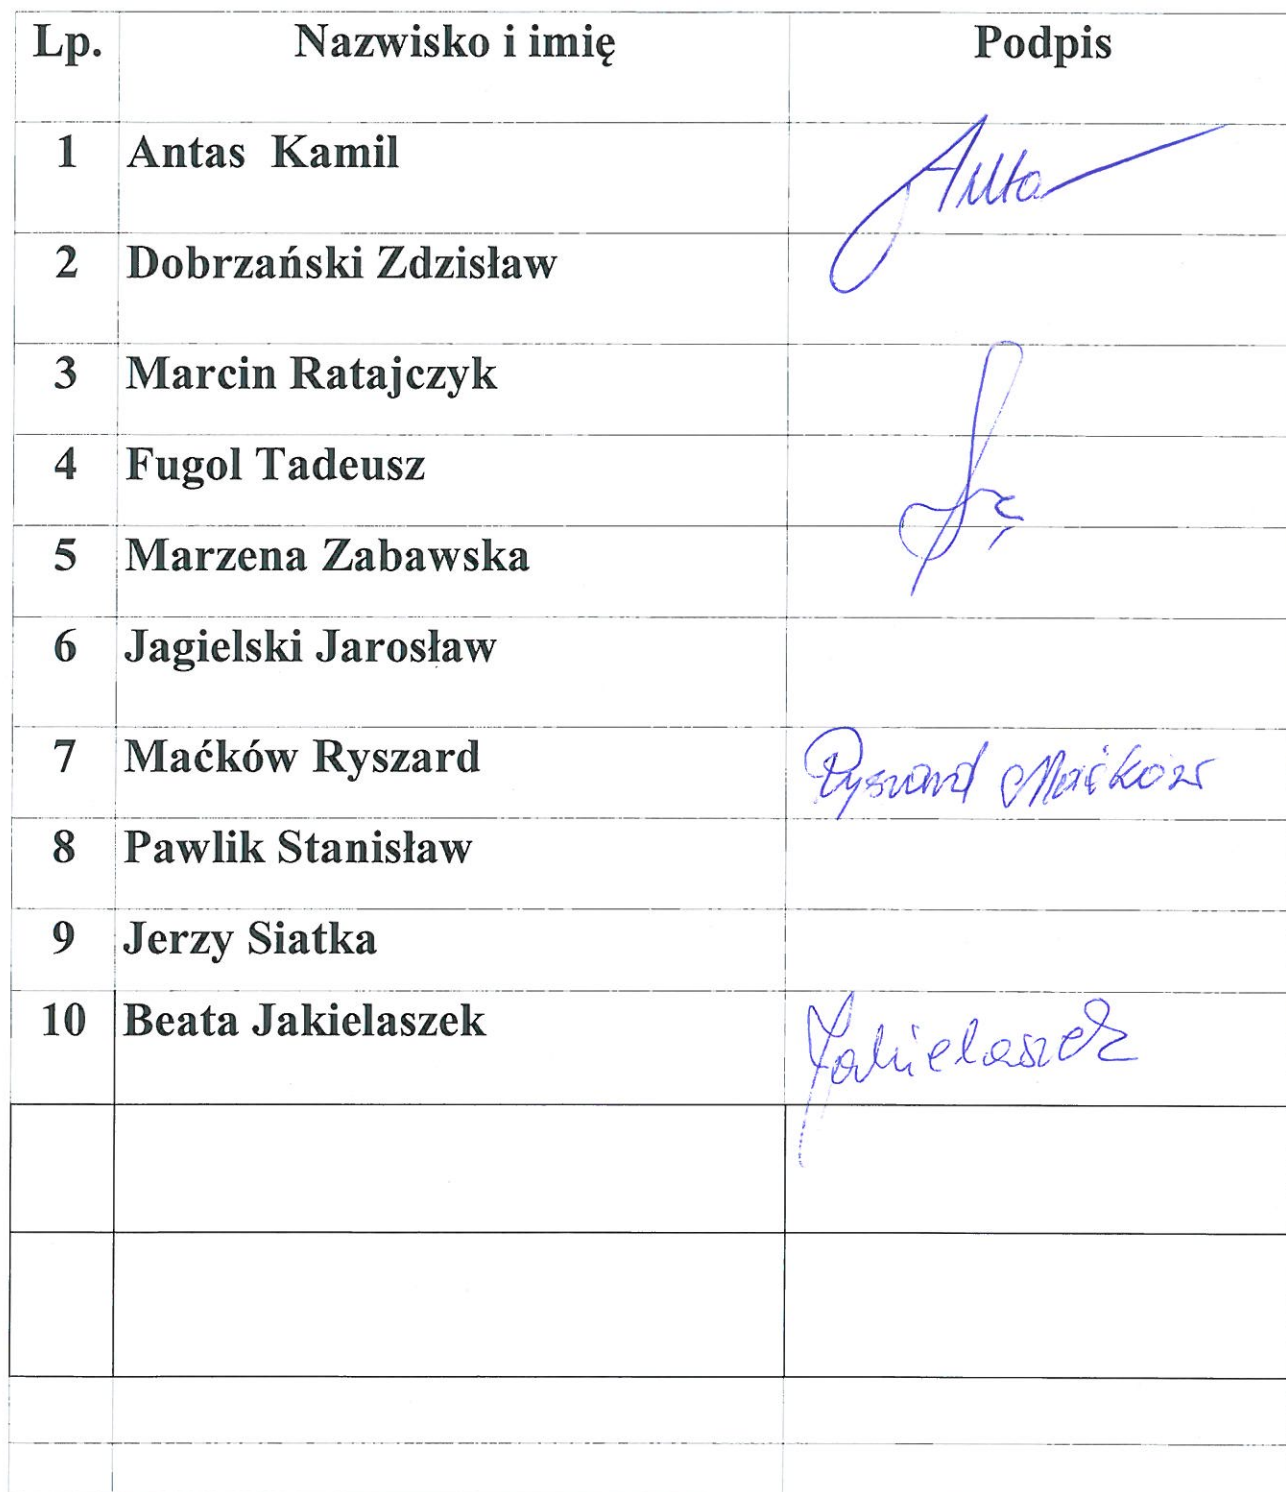 Lp. Nazwisko i imię Podpis
1 Antas Kamil
2 Dobrzański Zdzisław
3 Marcin Ratajczyk
4 Fugol Tadeusz
5 Marzena Zabawska
6 Jagielski Jarosław
7 Maćków Ryszard Ryszard Maćków
8 Pawlik Stanisław
9 Jerzy Siatka
10 Beata Jakielaszek Jakielaszek